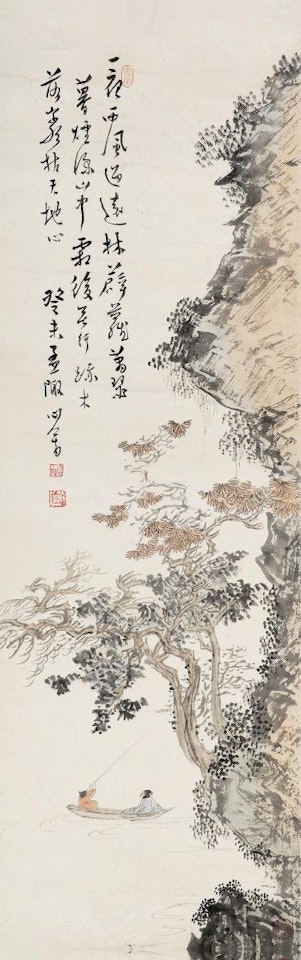 一夜西風過遠林薜蘿蕭瑟
暮煙深山中霜後無行跡木
落泉枯天地心 癸未孟陬 心畬